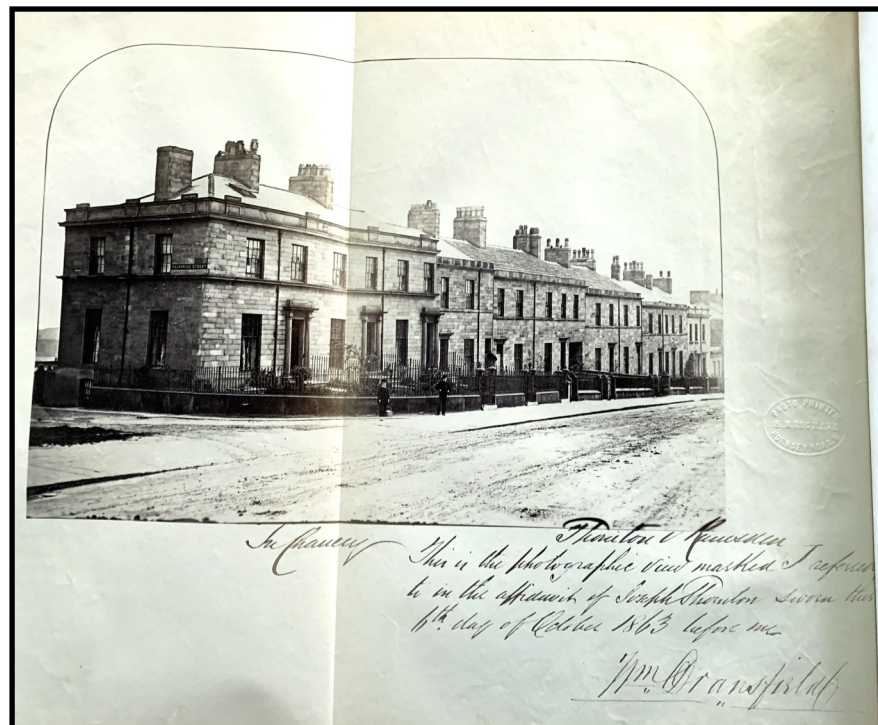 STREET
PHOTO PRINTER
In Chancery
Thornton v Ramsden
This is the photographic view marked I referred
to in the affidavit of Joseph Thornton sworn this
day of October 1863 before me
Wm. Dransfield